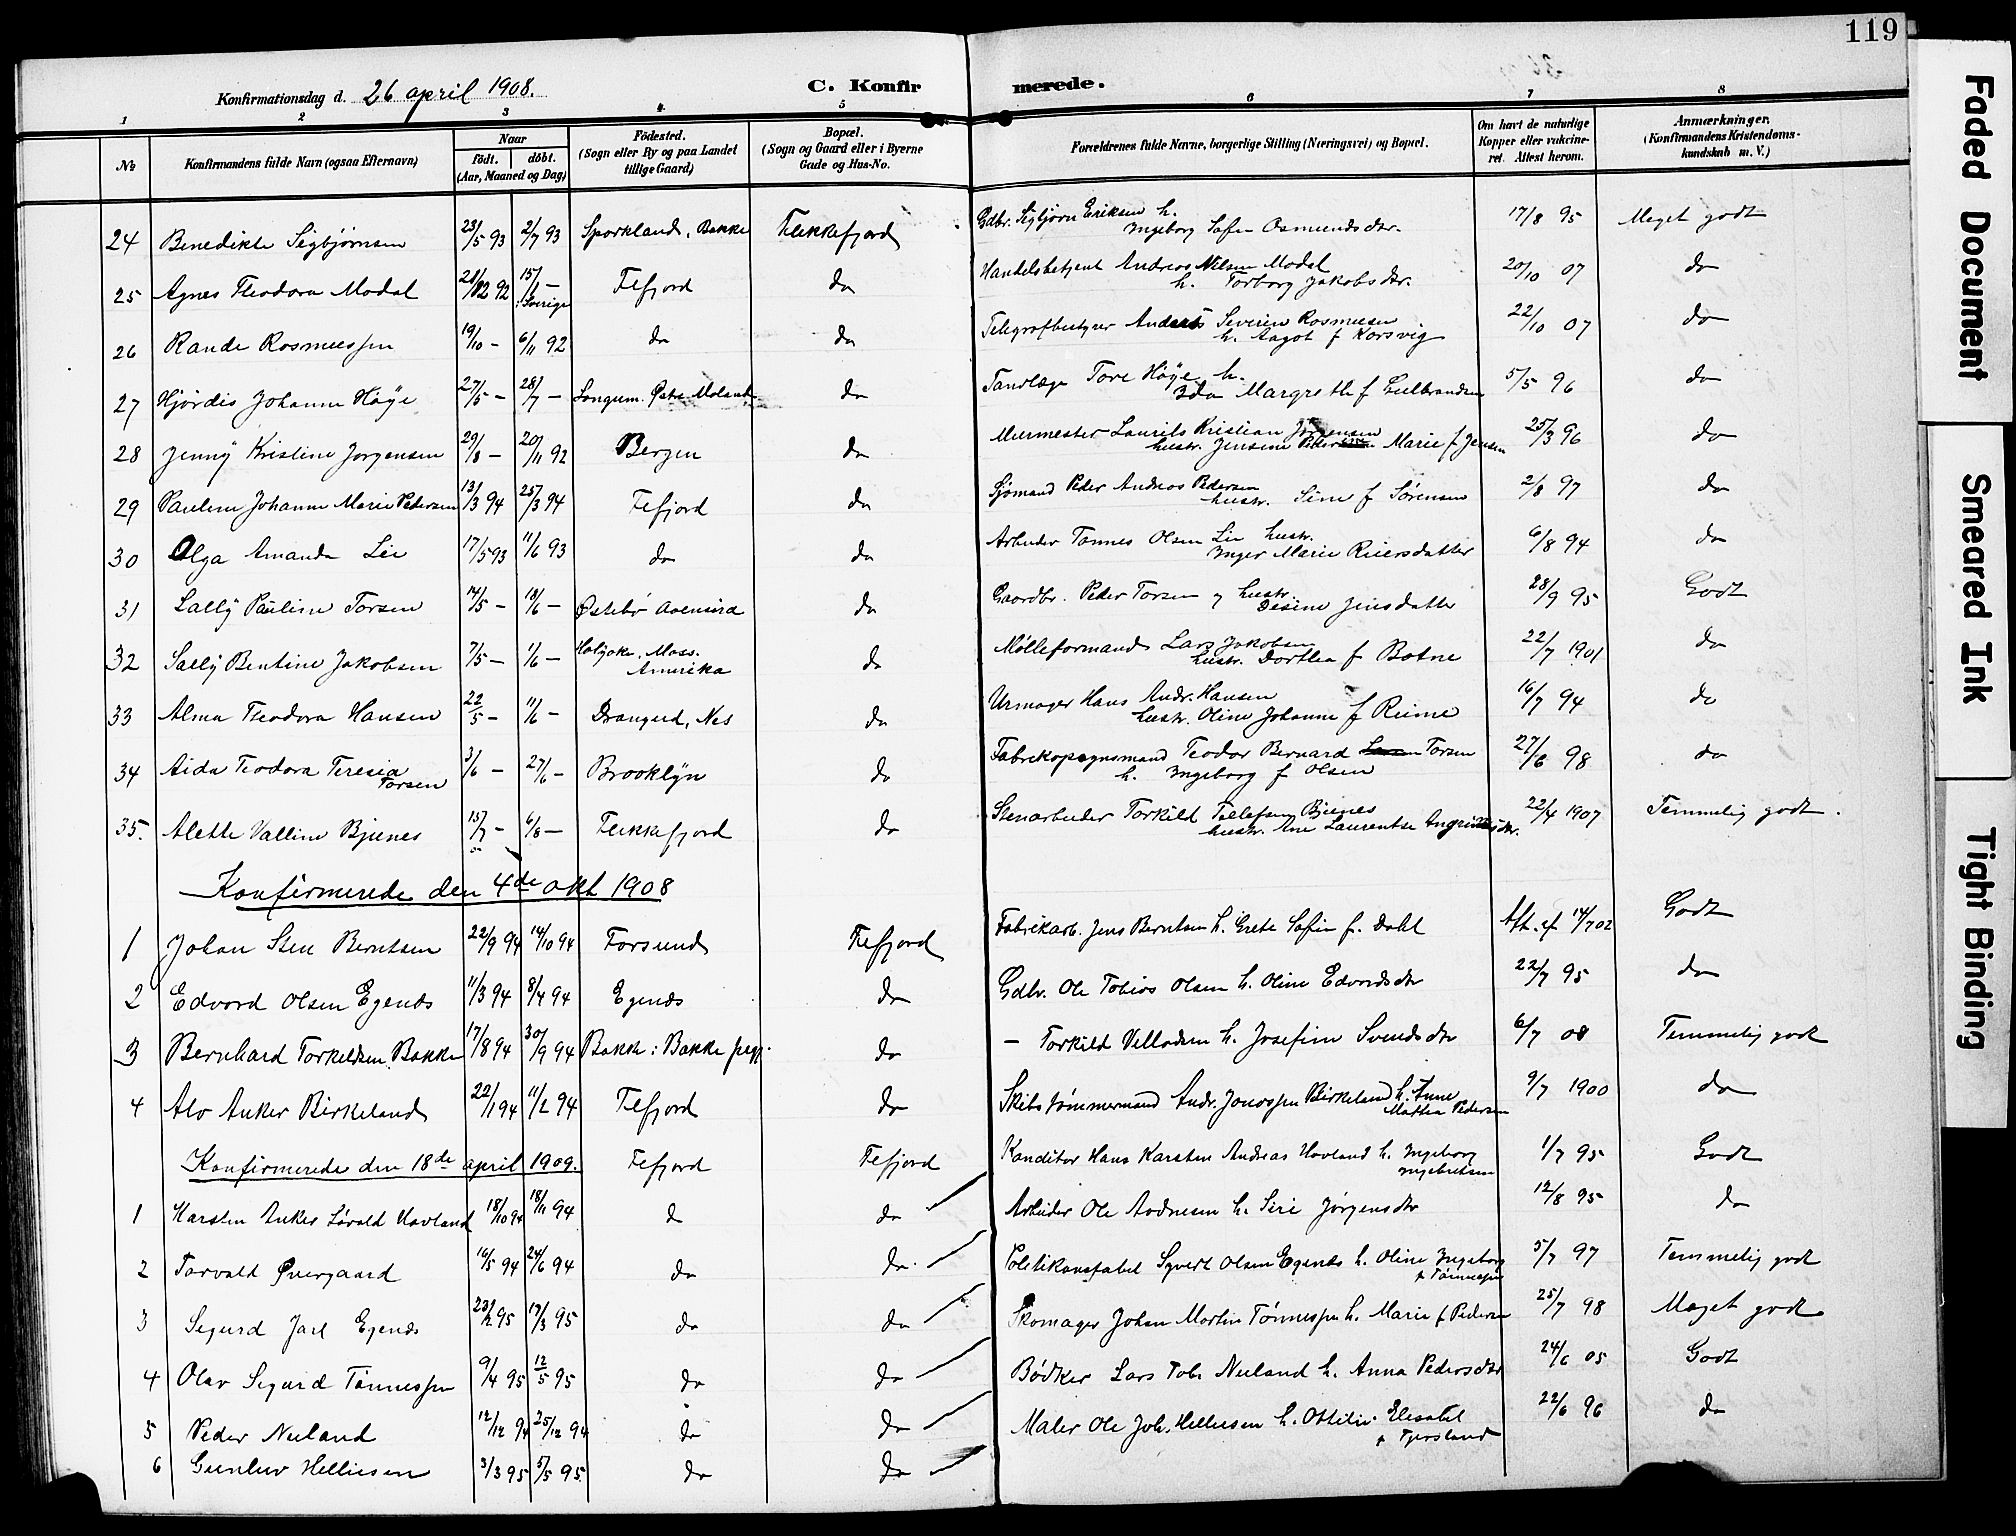 119
Konfirmationsdag d. 26 april 1908. C. Konfirmerede.
1 2 3 4 5 6 7 8
No Konfirmandens fulde Navn (ogsaa Efternavn) Naar født. døbt. (Aar, Maaned og Dag) Födested. (Sogn eller By og paa Landet tillige Gaard) Bopæl. (Sogn og Gaard eller i Byerne Gade og Hus-No. Forældrenes fulde Navne, borgerlige Stilling (Næringsvei) og Bopæl. Om havt de naturlige Kopper eller vakcineret. Attest herom. Anmærkninger. (Konfirmandens Kristendomskundskab m. V.)
24 Benedikte Sigbjørnsen 23/5 93 2/7 93 Sporkland, Bakke Flekkefjord Gdbr. Sigbjørn Eriksen h. Ingeborg Sofie Osmundsdtr. 17/8 95 Meget godt
25 Agnes Theodora Modal 21/12 92 15/1 – Sverige Fefjord do Handelsbetjent Andreas Nilsen Modal h. Torborg Jakobsdtr. 20/10 07 do
26 Rande Rasmussen 19/10 – 6/11 92 do do Telegrafbestyrer Anders Severin Rasmussen h. Aagot f Korsvig 22/10 07 do
27 Hjørdis Johanne Høye 27/5 – 28/7 – Longum. Østre Moland do Tandlæge Tore Høye h. Ida Margrethe f Gulbrandsen 5/5 96 do
28 Jenny Kristine Jørgensen 29/8 – 20/11 92 Bergen do Murmester Laurits Kristian Jørgensen hustr. Jensine Marie f Jensen 25/3 96 do
29 Pauline Johanne Marie Pedersen 13/3 94 25/3 94 Fefjord do Sjömand Peder Andreas Pedersen hustr. Sine f Sørensen 2/8 97 do
30 Olga Amanda Lie 17/5 93 11/6 93 do do Arbeider Tønnes Olsen Lie hustr. Inger Marie Reiersdatter 6/8 94 do
31 Sally Pauline Torsen 14/5 – 18/6 – Østebø Aaensira do Gaardbr. Peder Torsen og hustr. Desine Jensdatter 28/9 95 Godt
32 Sally Bentine Jakobsen 7/5 – 1/6 – Holyoke, Mass. Amerika do Mølleformand Lars Jakobsen hustr. Dorthea f Botne 22/7 1901 do
33 Alma Theodora Hansen 22/5 – 11/6 – Drangeid, Nes do Urmager Hans Andr. Hansen hustr. Oline Johanne f Reime 16/7 94 do
34 Aida Teodora Teresia Torsen 3/6 – 27/6 – Brooklyn do Fabrikopsynsmand Teodor Bernard Torsen h. Ingeborg f Olsen 27/6 98 do
35. Alette Valline Bjunes 15/7 – 6/8 – Flekkefjord do Stenarbeider Torkild Tellefsen Bjunes hustr. Ane Laurentse 22/4 1907 Temmelig godt.
Konfirmerede den 4de okt 1908
1 Johan Sten Berntsen 22/9 94 14/10 94 Farsund Fefjord Fabrikarb. Jens Berntsen h. Grete Sofie f. Dahl Att. af 14/7 02 Godt
2 Edvard Olsen Egenæs 11/3 94 8/4 94 Egenæs do Gdbr. Ole Tobias Olsen h. Oline Edvardsdtr 22/7 95 do
3 Bernhard Torkildsen Bakke 17/8 94 30/9 94 Bakke i Bakke prgj. do – Torkild Villadsen h. Josefine Svendsdtr 6/7 08 Temmelig godt
4 Alv Anker Birkeland 22/1 94 11/2 94 Fefjord do Skibstømmermand Andr. Jonassen Birkeland h. Anne Mathea Pedersen 9/7 1900 do
Konfirmerede den 18de april 1909. Fefjord Fefjord Konditor Hans Karsten Andreas Hovland h. Ingeborg Ingebretsen 1/7 95 Godt
1 Karsten Anker Hovland 18/10 94 18/11 94 d do Arbeider Ole Aadnesen h. Siri Jørgensdtr 12/8 95 do
2 Torvald Øvergaard 16/5 94 24/6 94 do do. Politikonstabel Syvert Olsen Egenæs h. Oline Ingeborg f Tønnessen 5/7 97 Temmelig godt
3 Sigurd Jarl Egenæs 23/2 95 17/3 95 do do Skomager Johan Martin Tønnessen h. Marie f Pedersen 25/7 98 Meget godt
4 Olav Sigurd Tønnessen 9/4 95 12/5 95 do do Bødker Lars Tob. Neuland h. Anna Pedersdtr 24/6 05 Godt
5 Peder Neuland 12/12 94 25/12 94 do do Maler Ole Joh. Helliesen h. Ottilie Elisabet f Tjorsland 22/6 96 do
6 Gunluv Helliesen 3/3 95 5/5 95 do do
Faded Document
Smeared Ink
Tight Binding